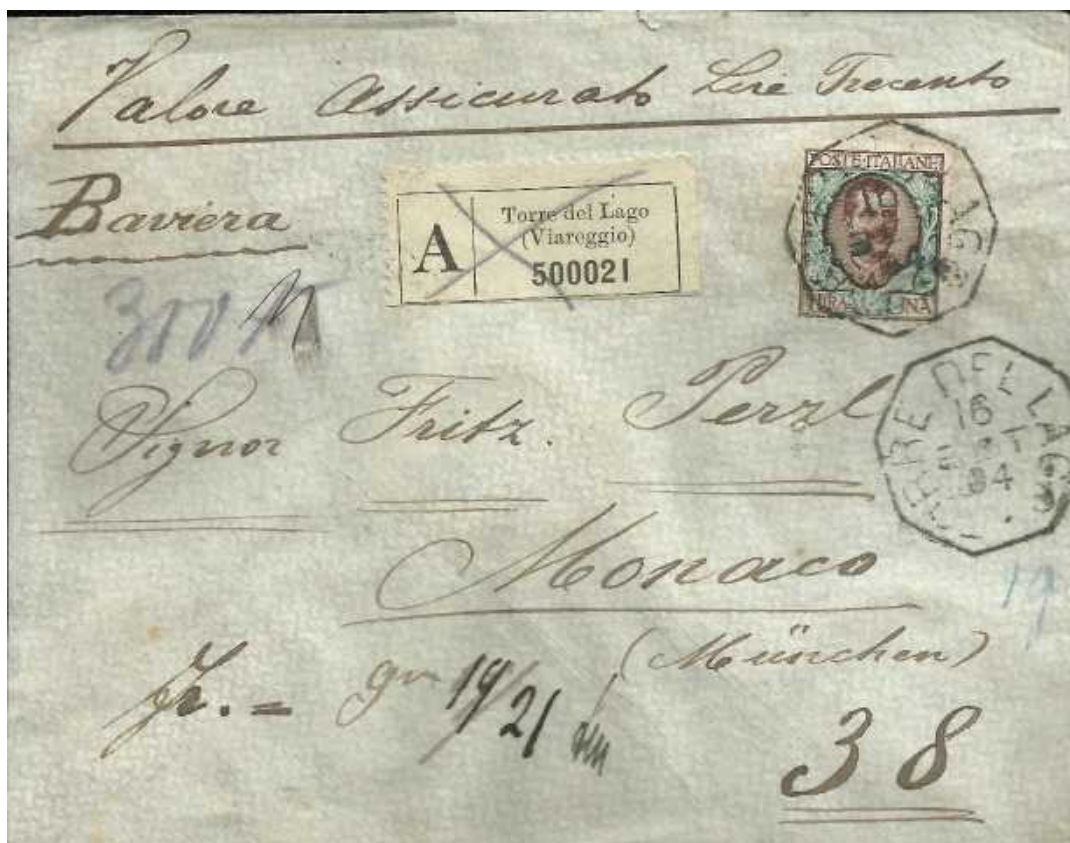 Valore Assicurato Lire Trecento
Baviera
A
Torre del Lago
(Viareggio)
500021
POSTE·ITALIANE
LIRA UNA
300
Signor Fritz. Perzl
TORRE DEL LAGO
16
04
Monaco
(München)
19
19/21
38